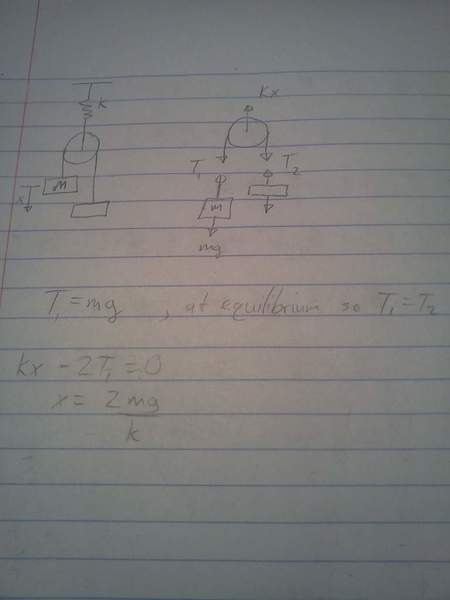 k
Kx
T₁
T₂
m
x
m
mg
T₁ = mg , at equilibrium so T₁ = T₂
kx - 2T₁ = 0
x = 2mg
k